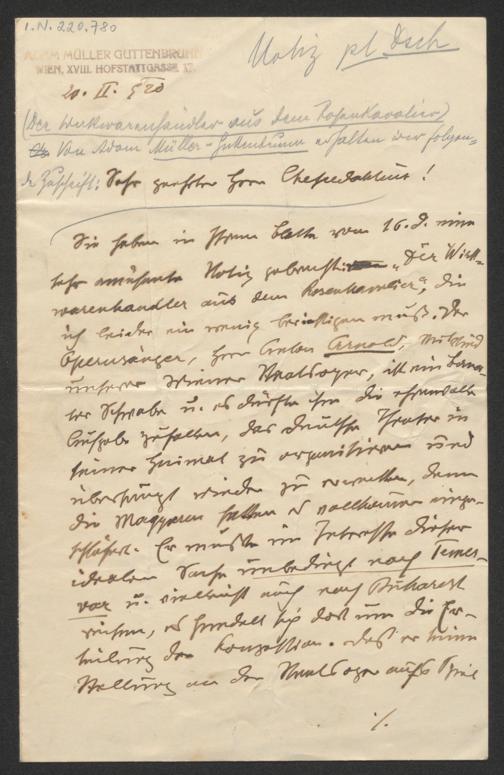 I.N. 220.780
Notiz pl. Dsch
ADAM MÜLLER GUTTENBRUNN
WIEN, XVIII. HOFSTATTGASSE 17.
20. II. 920
(Der Wirkwarenhändler aus dem Rosenkavalier)
Von Adam Müller-Guttenbrunn erhalten wir folgen-
de Zuschrift: Sehr geehrter Herr Chefredakteur!
Sie haben in Ihrem Blatte vom 16. d. eine
sehr amüsante Notiz gebracht: „Der Wirk-
warenhandler aus dem Rosenkavalier", die
ich leider ein wenig berichtigen muß. Der
Opernsänger, Herr Anton Arnold, Mitglied
unserer Wiener Staatsoper, ist ein Bana-
ter Schwabe u. es dürfte ihm die ehrenvolle
Aufgabe zufallen, das deutsche Theater in
seiner Heimat zu organisieren und
überhaupt wieder zu erwecken, denn
die Magyaren hatten es vollkommen einge-
schläfert. Er mußte im Interesse dieser
idealen Sache unbedingt nach Temes-
var u. vielleicht auch nach Bukarest
reisen, es handelt sich dort um die Er-
teilung der Konzession. Daß er seine
Stellung an der Staatsoper aufs Spiel
./.